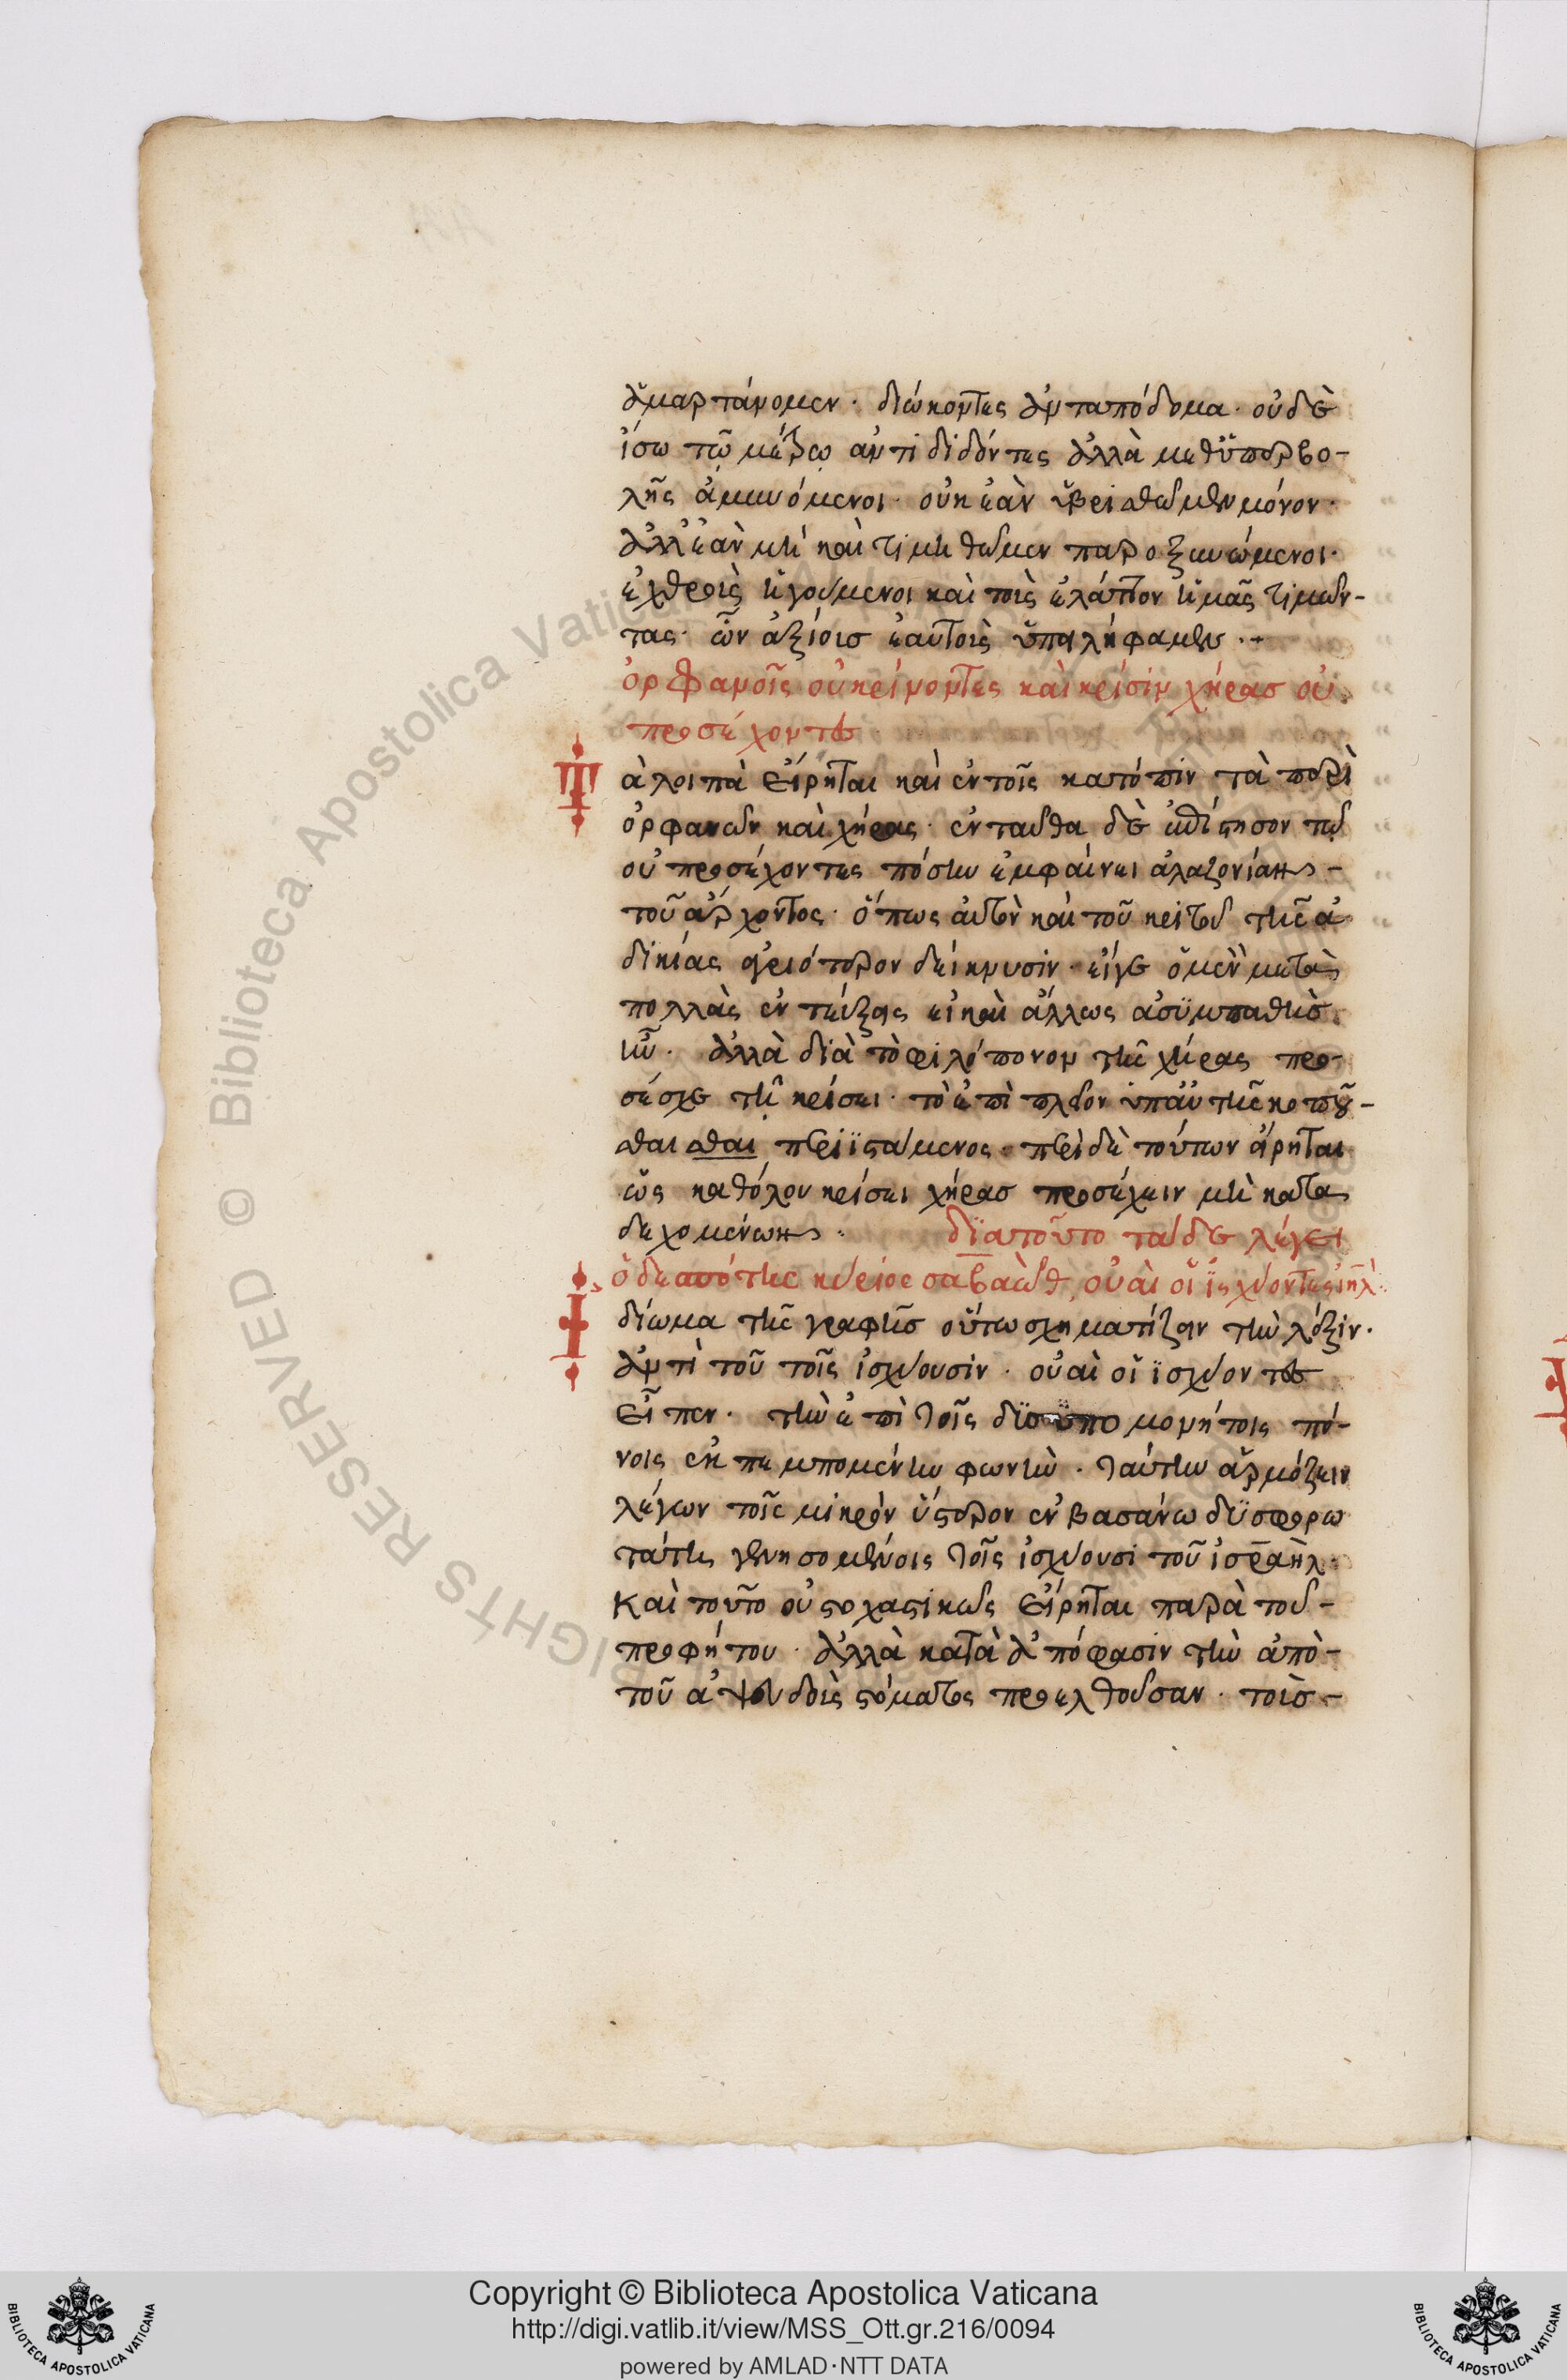 ἁμαρτάνομεν· διώκοντες ἀνταπόδομα· οὐδὲ
ἴσω τῶ μέτρω ἀντιδιδόντες ἀλλὰ μεθ ὑπερβο-
λῆς ἀμυνόμενοι· οὐκ ἐὰν ὑβρισθῶμεν μόνον·
ἀλλ ἐὰν μὴ καὶ τιμηθῶμεν παροξυνόμενοι·
ἐχθροὺς ἡγούμενοι καὶ τοὺς ἐλάττον ἡμᾶς τιμῶν-
τας· ὧν ἀξίους ἑαυτοὺς ὑπειλήφαμεν ·+
ὀρφανοῖς οὐ κρίνοντες καὶ κρίσιν χήρας οὐ
προσέχοντες
Τὰ λοιπὰ εἴρηται καὶ ἐν τοῖς κατόπιν τὰ περὶ
ὀρφανῶν καὶ χήρας· ἐνταῦθα δὲ ἐπίστησον τὸ
οὐ προσέχοντες πόσην ἐμφαίνει ἀλαζονίαν -
τοῦ ἄρχοντος· ὅπως αὐτὸν καὶ τοῦ κριτοῦ τῆς ἀ
δικίας ἀγριότερον δείκνυσιν· εἴγε ὁ μὲν μετὰ
πολλὰς ἐντεύξεις εἰ καὶ ἄλλως ἀσυμπαθὴς
ἦν· ἀλλὰ διὰ τὸ φιλόπονον τῆς χήρας προ-
σέσχε τῆ κρίσει· τὸ ἐπὶ πλεῖον ὑπ αὐτῆς κοποῦ-
σθαι σθαι περιϊστάμενος· περὶ δὲ τούτων εἴρηται
ὡς καθόλου κρίσει χήρας προσέχειν μὴ κατα
δεχομένων· διατοῦτο τάδε λέγει
ὁ δεσπότης κύριος σαβαώθ, οὐαὶ οἱ ἰσχύοντες ἰηλ·
Ἰδίωμα τῆς γραφῆς οὕτω σχηματίζειν τὴν λέξιν·
ἀντὶ τοῦ τοῖς ἰσχύουσιν· οὐαὶ οἱ ἰσχύοντες
εἶπεν· τὴν ἐπὶ τοῖς δυσϋπομονήτοις πό-
νοις ἐκπεμπομένην φωνὴν· ταύτην ἁρμόζειν
λέγων τοῖς μικρὸν ὕστερον ἐν βασάνω δυσφορω
τάτη γενησομένοις τοῖς ἰσχύουσι τοῦ ἰσραὴλ·
Καὶ τοῦτο οὐ στοχαστικῶς εἴρηται παρὰ τοῦ -
προφήτου· ἀλλὰ κατὰ ἀπόφασιν τὴν ἀπὸ -
τοῦ ἀψευδοῦς στόματος προελθοῦσαν· τοὺς -
Copyright © Biblioteca Apostolica Vaticana
http://digi.vatlib.it/view/MSS_Ott.gr.216/0094
powered by AMLAD·NTT DATA
BIBLIOTECA APOSTOLICA VATICANA
BIBLIOTECA APOSTOLICA VATICANA